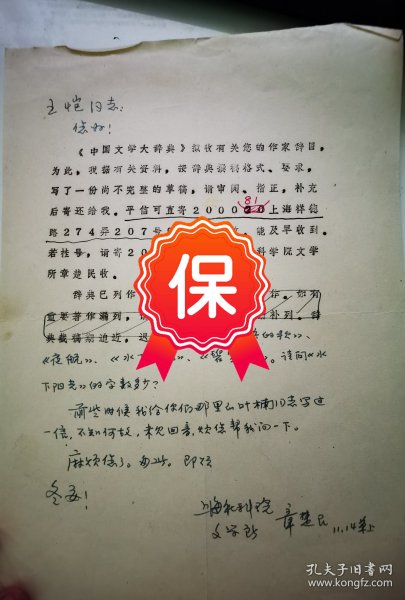 王恺同志：
您好！
《中国文学大辞典》拟收有关您的作家辞目，
为此，我据有关资料，按辞典撰稿格式、要求，
写了一份尚不完整的草稿，请审阅、指正，补充
后寄还给我。平信可直寄2000 81 上海祥德
路274弄207号 能及早收到。
若挂号，请寄20 科学院文学
所章楚民收。
保
辞典已列作
重要著作漏列， 补列。辞
典截稿期迫近，
《夜航》、《水 》、 请问《水
下阳光》的字数多少？
前些时候我给你们那里的叶楠同志写过
一信，不知何故，未见回音，烦您帮我问一下。
麻烦您了。匆此。即颂
冬安！
上海社科院
文学所 章楚民 11.14 上
孔夫子旧书网
www.kongfz.com